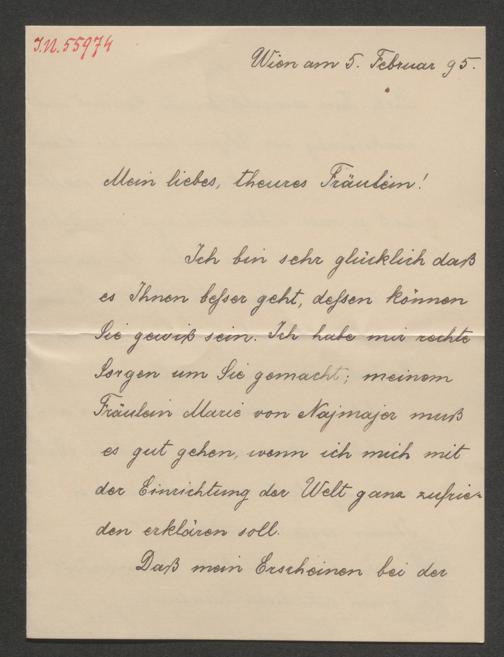 J.N. 55974
Wien am 5. Februar 95.
Mein liebes, theures Fräulein!
Ich bin sehr glücklich daß
es Ihnen beſser geht, deſsen können
Sie gewiß sein. Ich habe mir rechte
Sorgen um Sie gemacht; meinem
Fräulein Marie von Najmajer muß
es gut gehen, wenn ich mich mit
der Einrichtung der Welt ganz zufrie-
den erklären soll.
Daß mein Erscheinen bei der